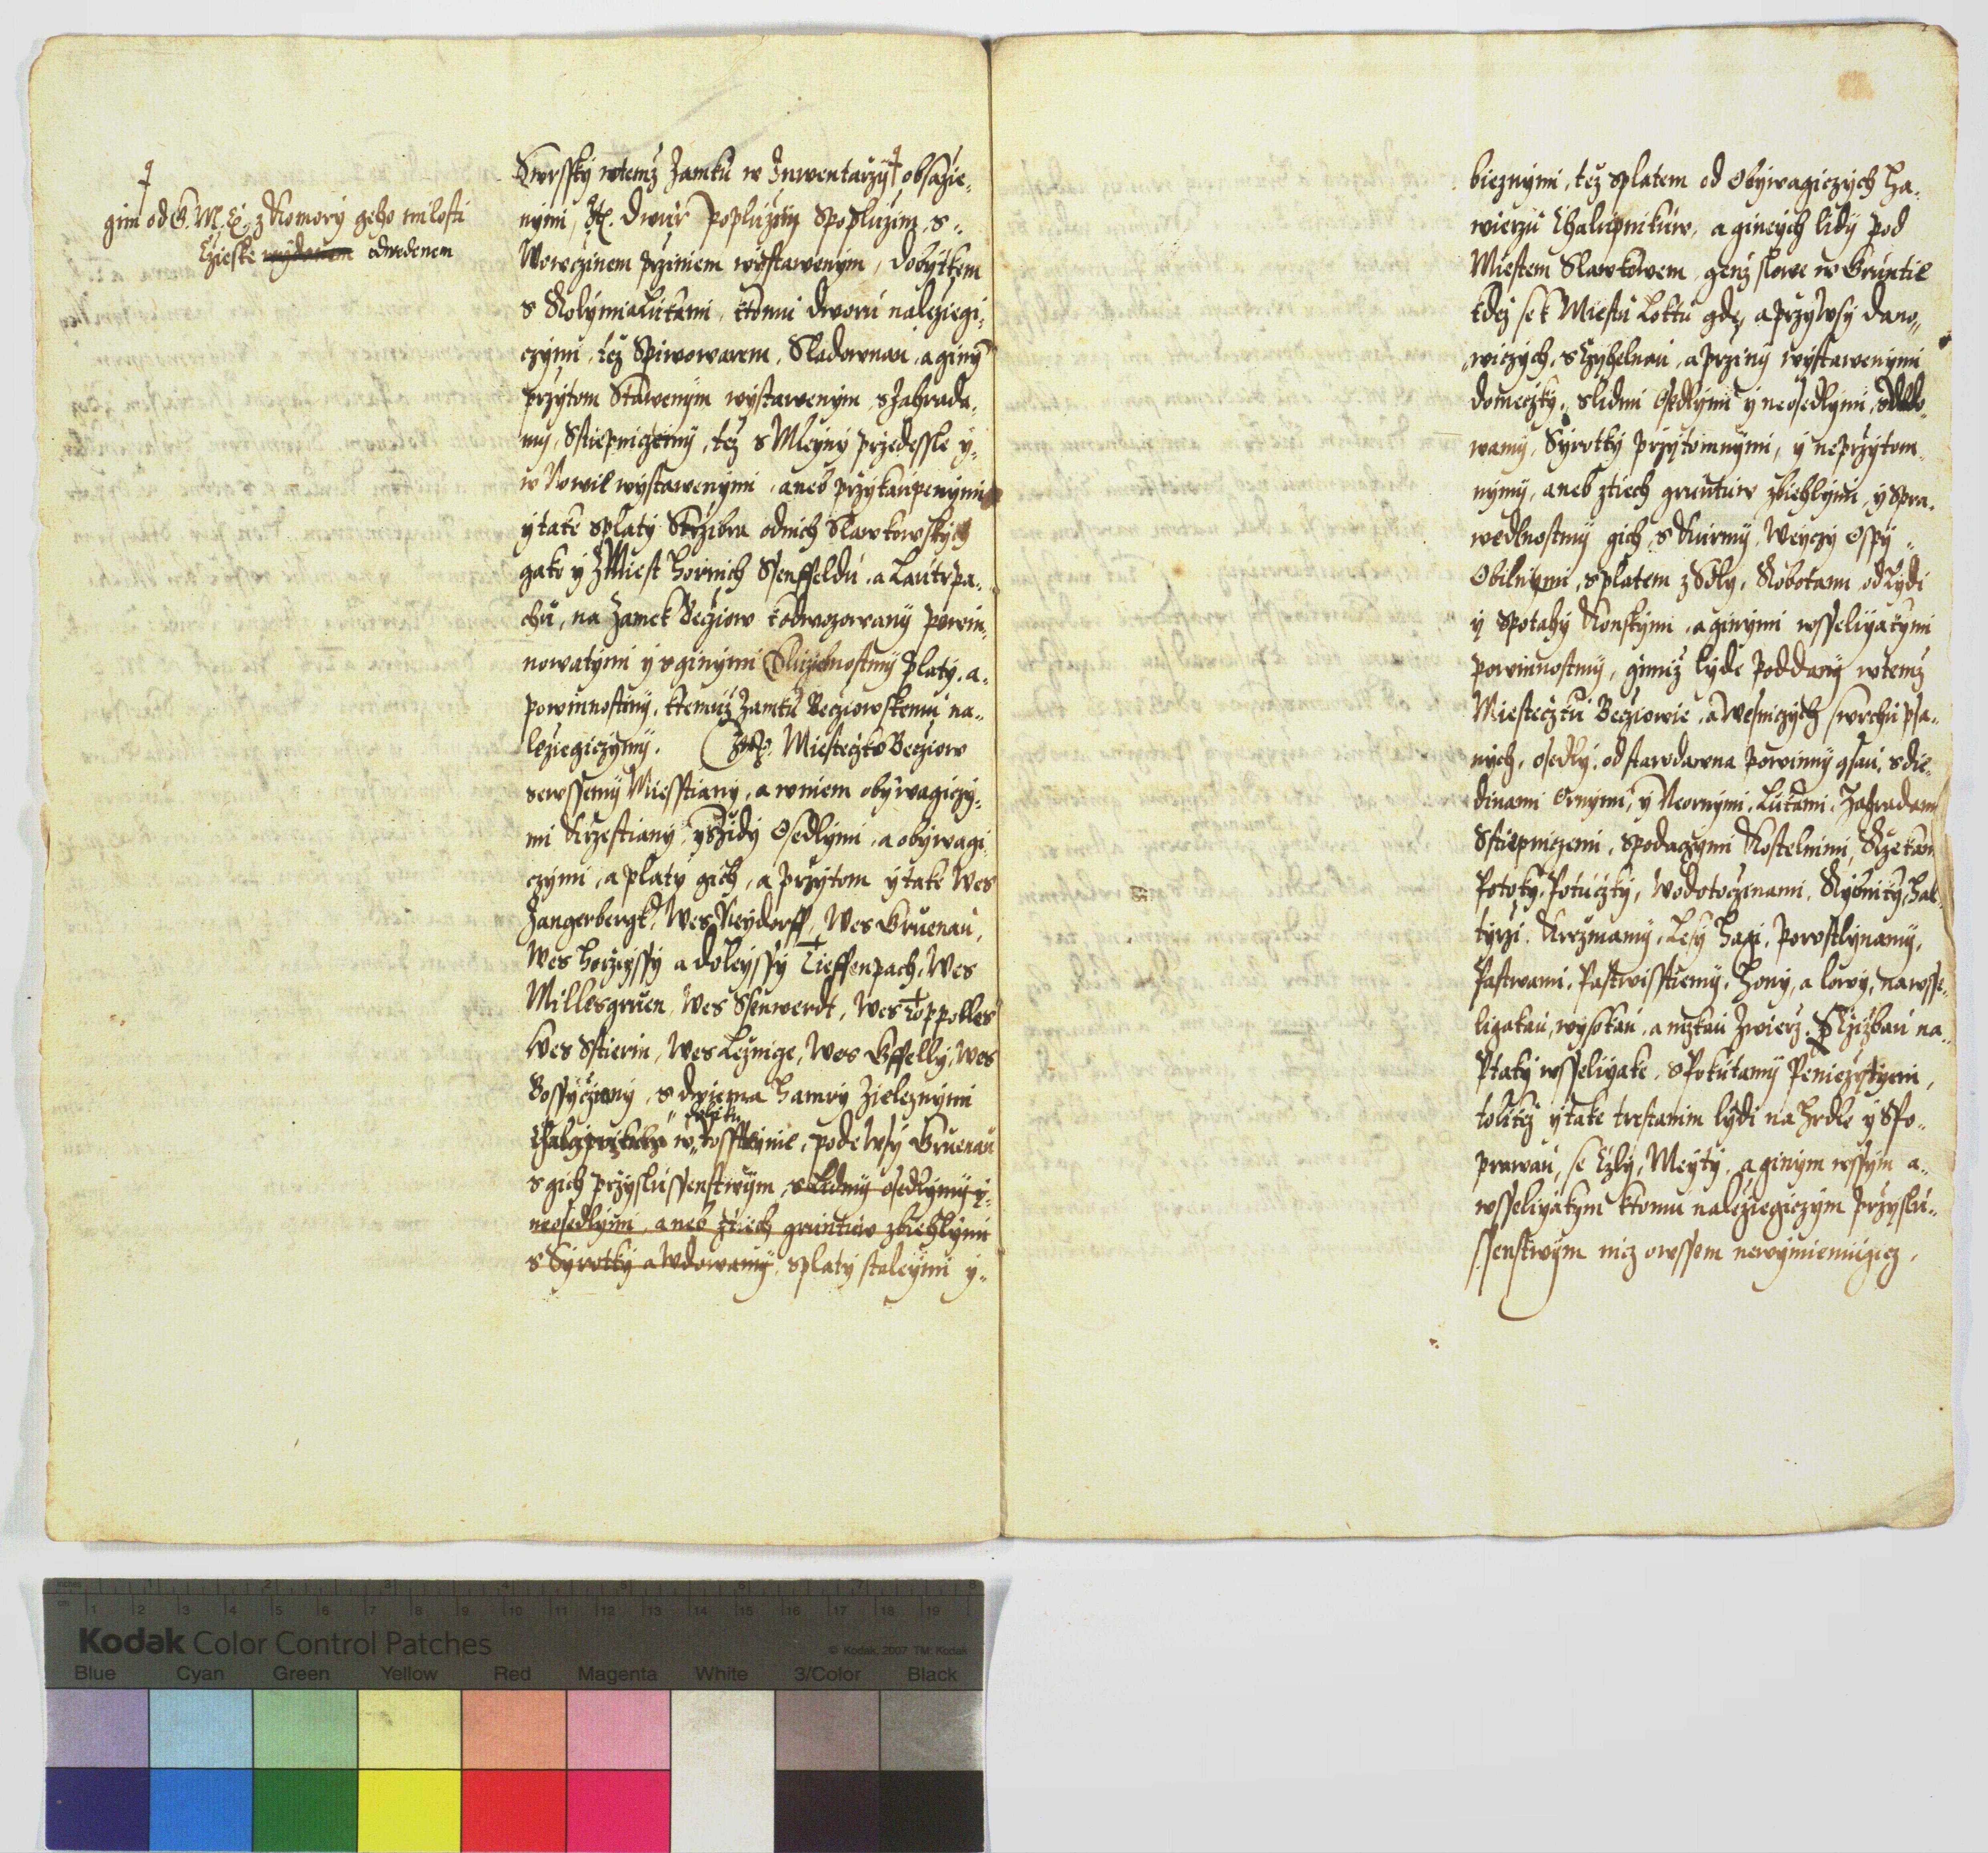 gim od G. M. C. z Komory geho milosti
Czieske wydanem odwedenem
Swrssky wtemz Zamku w Inwentarzy obsazie,
nymi, Dwur Popluzny Spopluzim, s,,
Wowczinem prziniem wystawenym, dobytkem
s Rolymi a Lukami, ktomu dworu nalezegi,
czymi, tez Spiwowarem, Sladownau, a giny
przytom Stawenym wystawenym, s Zahrada,
my, Sstiepniczemy, tez s Mleyny przedessle y,
w Nowie wystawenymi, aneb przykaupenymi
ytake splaty Strzibra odnich Slawkowskych
gako y z Miest hornich Ssenffeldu, a Lautrpa,
chu, na Zamek Becziow kodwozowany powin,
nowatymi y s ginymi Sluzebnostmy platy, a,
powinnostmy, ktemuz Zamku Becziowskemu na,,
lezegiczymy. Miesteczko Becziow
sewssemy Miesstiany, a wniem obywagiczy,
mi Krzestiany, yszidy Osedlymi, a obywagi
czymi, a platy gich, a przytom ytake Wes
Zangerbergk, Wes Neydorff, Wes Gruenau,
Wes horzegssy a doleyssy Tieffenpach, Wes
Millesgruen, Wes Ssenwerdt, Wes Toppolles
Wes Sstierin, Wes Leznige, Wes Gffelly, Wes
Bossyczany, s dwiema hamry Zieleznymi
pode wsy Gruenau
s gich przyslussenstwym, s Lidmy osedlymy y,
neosedlymi, aneb ztiech gruntuw zbiehlymi
s Syrotky a Wdowamy, splaty staleymi y,,
bieznymi, tez splatem od Obywagiczych ha,
wierzu Chalupnikuw, a gineych lidy pod
Miestem Slawkowem, genz slowe w Gruntie
kdez se k Miestu Loktu gde, a przy wsy Dano,,
wiczych, s Czyhelnau, a przing wystawenymi
domeczky, s lidmi Osedlymi y neosedlymi, Wdo,
wamy, Syrotky przytomnymi, y neprzytom
nymy, aneb ztiech gruntuw zbiehlymi, y spra,
wedlnostmy gich, s Kurmy, Weyczy Ospy,,
Obilnymi, splatem z Soly, Robotami od lydi
y spotahy Konskymi, a ginymi wsseliyakymi
powinnostmy, gimiz lyde Poddany wtemz
Miesteczku Becziowie, a Wesniczych swrchu psa,
nych, osedly, od stawdawna powinny gsau, s die,
dinami Ornymi, y Neornymi, Lukami, Zahradami
Sstiepniczemi, spodaczymi Kostelnimi, Rzekami
Potoky, Potuczky, Wodotoczinami, Rybniky, hal,
tyrzi, Krczmamy, Lesy hagi, Porostlynamy,
Pastwami, Pastwisstiemy, hony, a lowy, na wsse,
ligakau, wysokau, a nizkau Zwierz, S Czizbau na,,
Ptaky wsseliyake, s Pokutamy Penieztymi,
tolikez ytake trestanim lydi na hrdle y Spo,,
prawau, se Czly, Meyty, a ginym wssym a,,
wsseliyakym ktomu nalezegiczym przyslu,,
ssenstwym nicz owssem newymieniugicz,